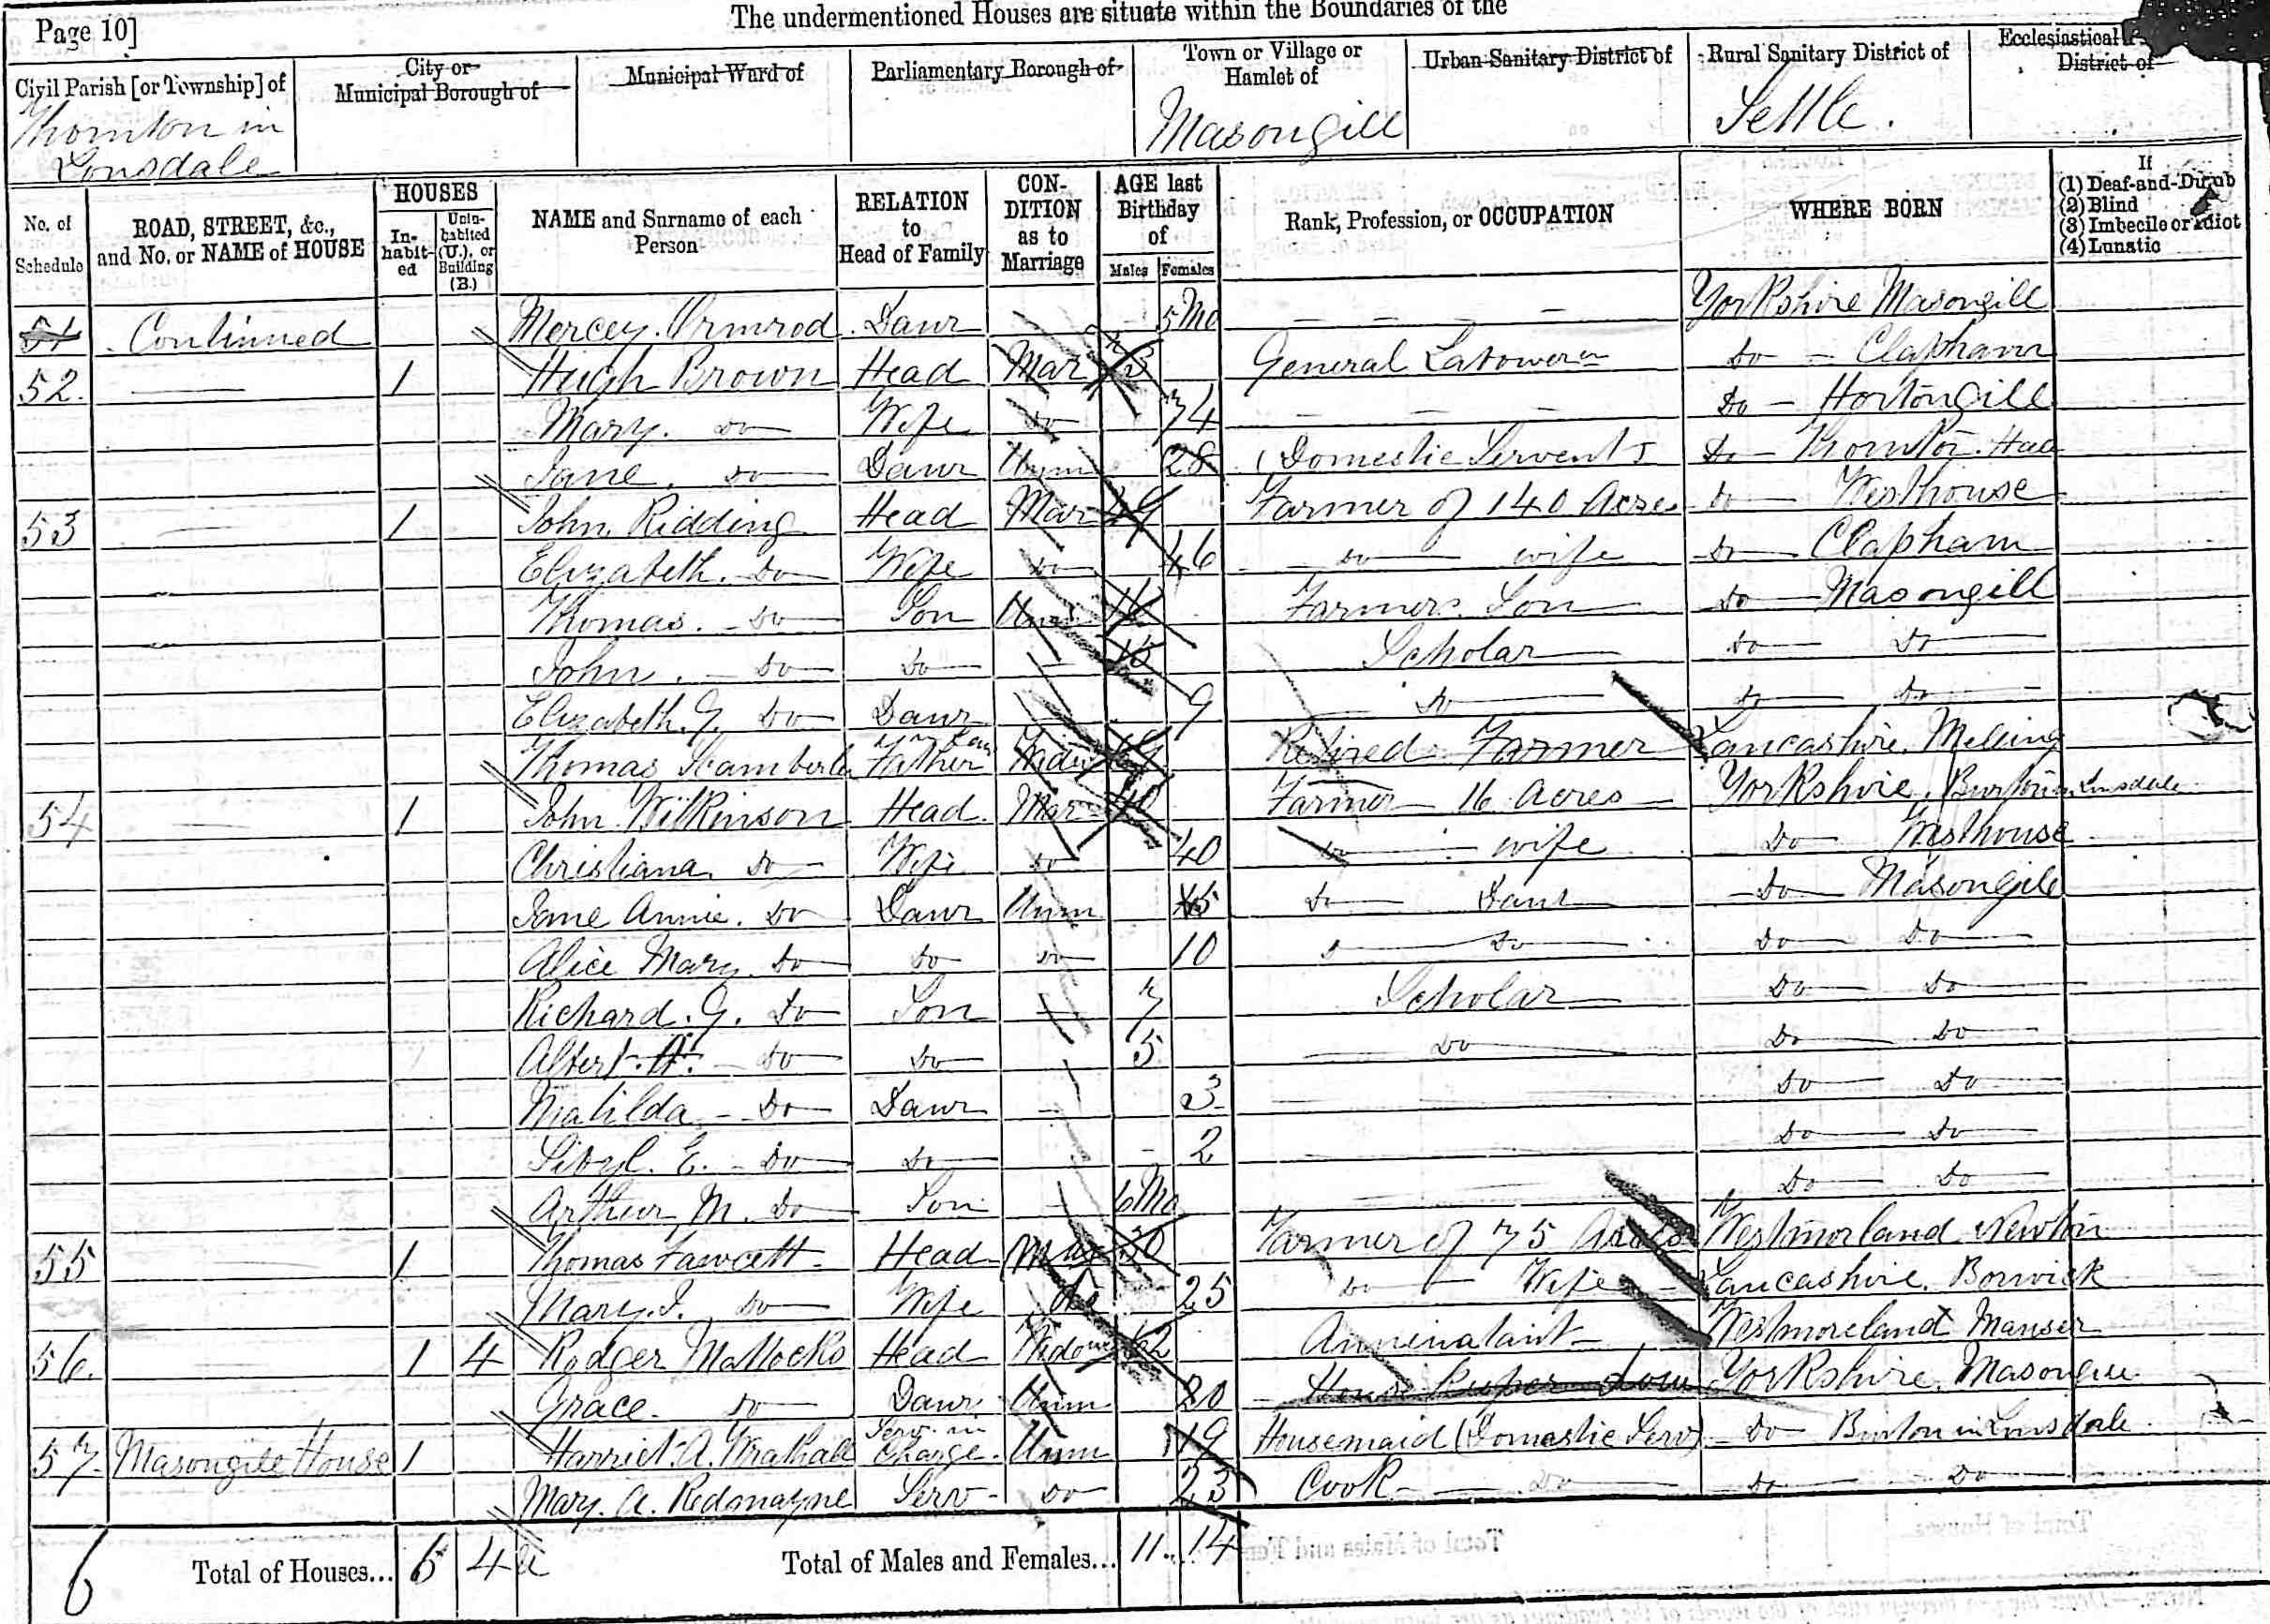 The undermentioned Houses are situate within the Boundaries of the
Page 10]
Civil Parish [or Township] of
City or Municipal Borough of
Municipal Ward of
Parliamentary Borough of
Town or Village or Hamlet of
Urban Sanitary District of
Rural Sanitary District of
Ecclesiastical District of
Thornton in Lonsdale
Masongill
Settle.
No. of Schedule
ROAD, STREET, &c., and No. or NAME of HOUSE
HOUSES
In-habit-ed
Unin-habited (U.), or Building (B.)
NAME and Surname of each Person
RELATION to Head of Family
CON-DITION as to Marriage
AGE last Birthday of
Males
Females
Rank, Profession, or OCCUPATION
WHERE BORN
If
(1) Deaf-and-Dumb
(2) Blind
(3) Imbecile or Idiot
(4) Lunatic
51 Continued Mercey. Ormrod Daur 5 Mo Yorkshire Masongill
52. 1 Hugh Brown Head Mar 73 General Labowerer Do Clapham
Mary. Do Wife Do 74 Do Hortongill
Jane. Do Daur Unm 28 (Domestic Servent) Do Thornton Hall
53 1 John Ridding Head Mar 49 Farmer of 140 Acres Do Westhouse
Elizabeth. Do Wife Do 46 Do wife Do Clapham
Thomas. Do Son Unm Farmers Son Do Masongill
John. Do Do Scholar Do Do
Elizabeth. G. Do Daur 9 Do Do Do
Thomas Father in Law Widr Retired Farmer Lancashire. Melling
54 1 John Wilkinson Head. Mar 40 Farmer 16 Acres Yorkshire. Burton in Lonsdale
Christiana Do Wife Do 40 Do wife Do Westhouse
Jane Annie. Do Daur Unm 15 Do Daur Do Masongill
Alice Mary. Do Do Do 10 Do Do Do
Richard. G. Do Son 7 Scholar Do Do
Albert. A. Do Do 5 Do Do Do
Matilda Do Daur 3 Do Do
Sibyl. E. Do Do 2 Do Do
Arthur M. Do Son 6 Mo Do Do
55 1 Thomas Fawcett Head Mar 30 Farmer of 75 Acres Westmorland Newton
Mary. J. Do Wife Do 25 Do Wife Lancashire. Borwick
56. 1 4 Rodger Mattocks Head Widowr 62 Anninataint Westmoreland Manser
Grace. Do Daur Unm 20 House Keeper Dom Yorkshire. Masongill
57. Masongill House 1 Harriet A. Wrathall Serv. in Charge. Unm 19 Housemaid (Domestic Serv) Do Burton in Lonsdale
Mary. A. Redmayne Serv Do 23 Cook Do Do Do
6 Total of Houses... 6 4 Total of Males and Females... 11 14